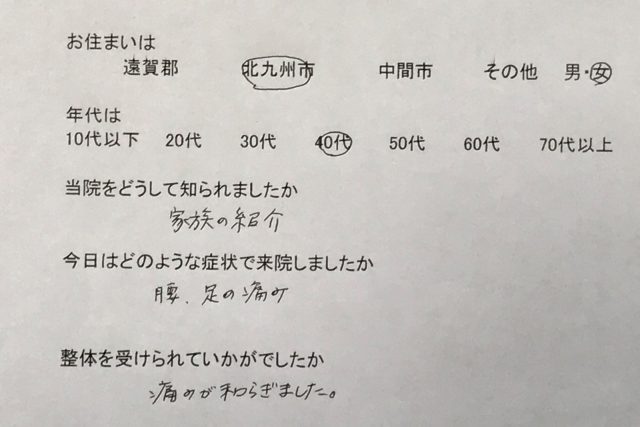 お住まいは
遠賀郡 北九州市 中間市 その他 男・女
年代は
10代以下 20代 30代 40代 50代 60代 70代以上
当院をどうして知られましたか
家族の紹介
今日はどのような症状で来院しましたか
腰、足の痛み
整体を受けられていかがでしたか
痛みが和らぎました。